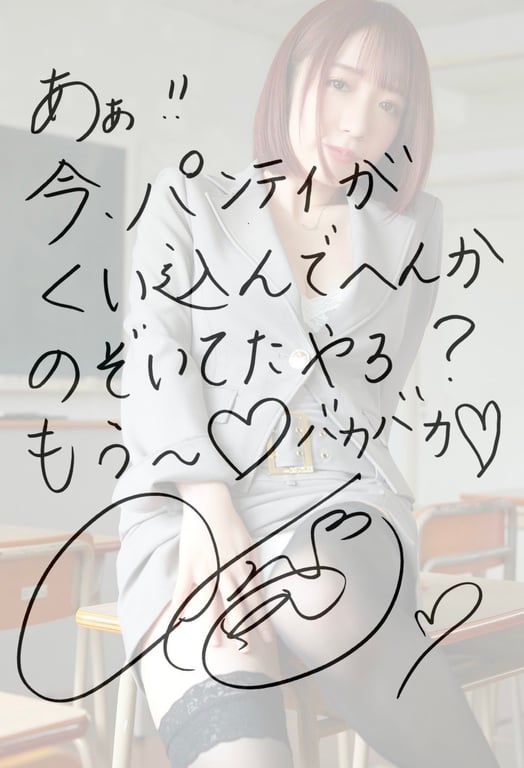 あぁ!!
今、パンティが
くい込んでへんか
のぞいてたやろ?
もう〜♡バカバカ♡